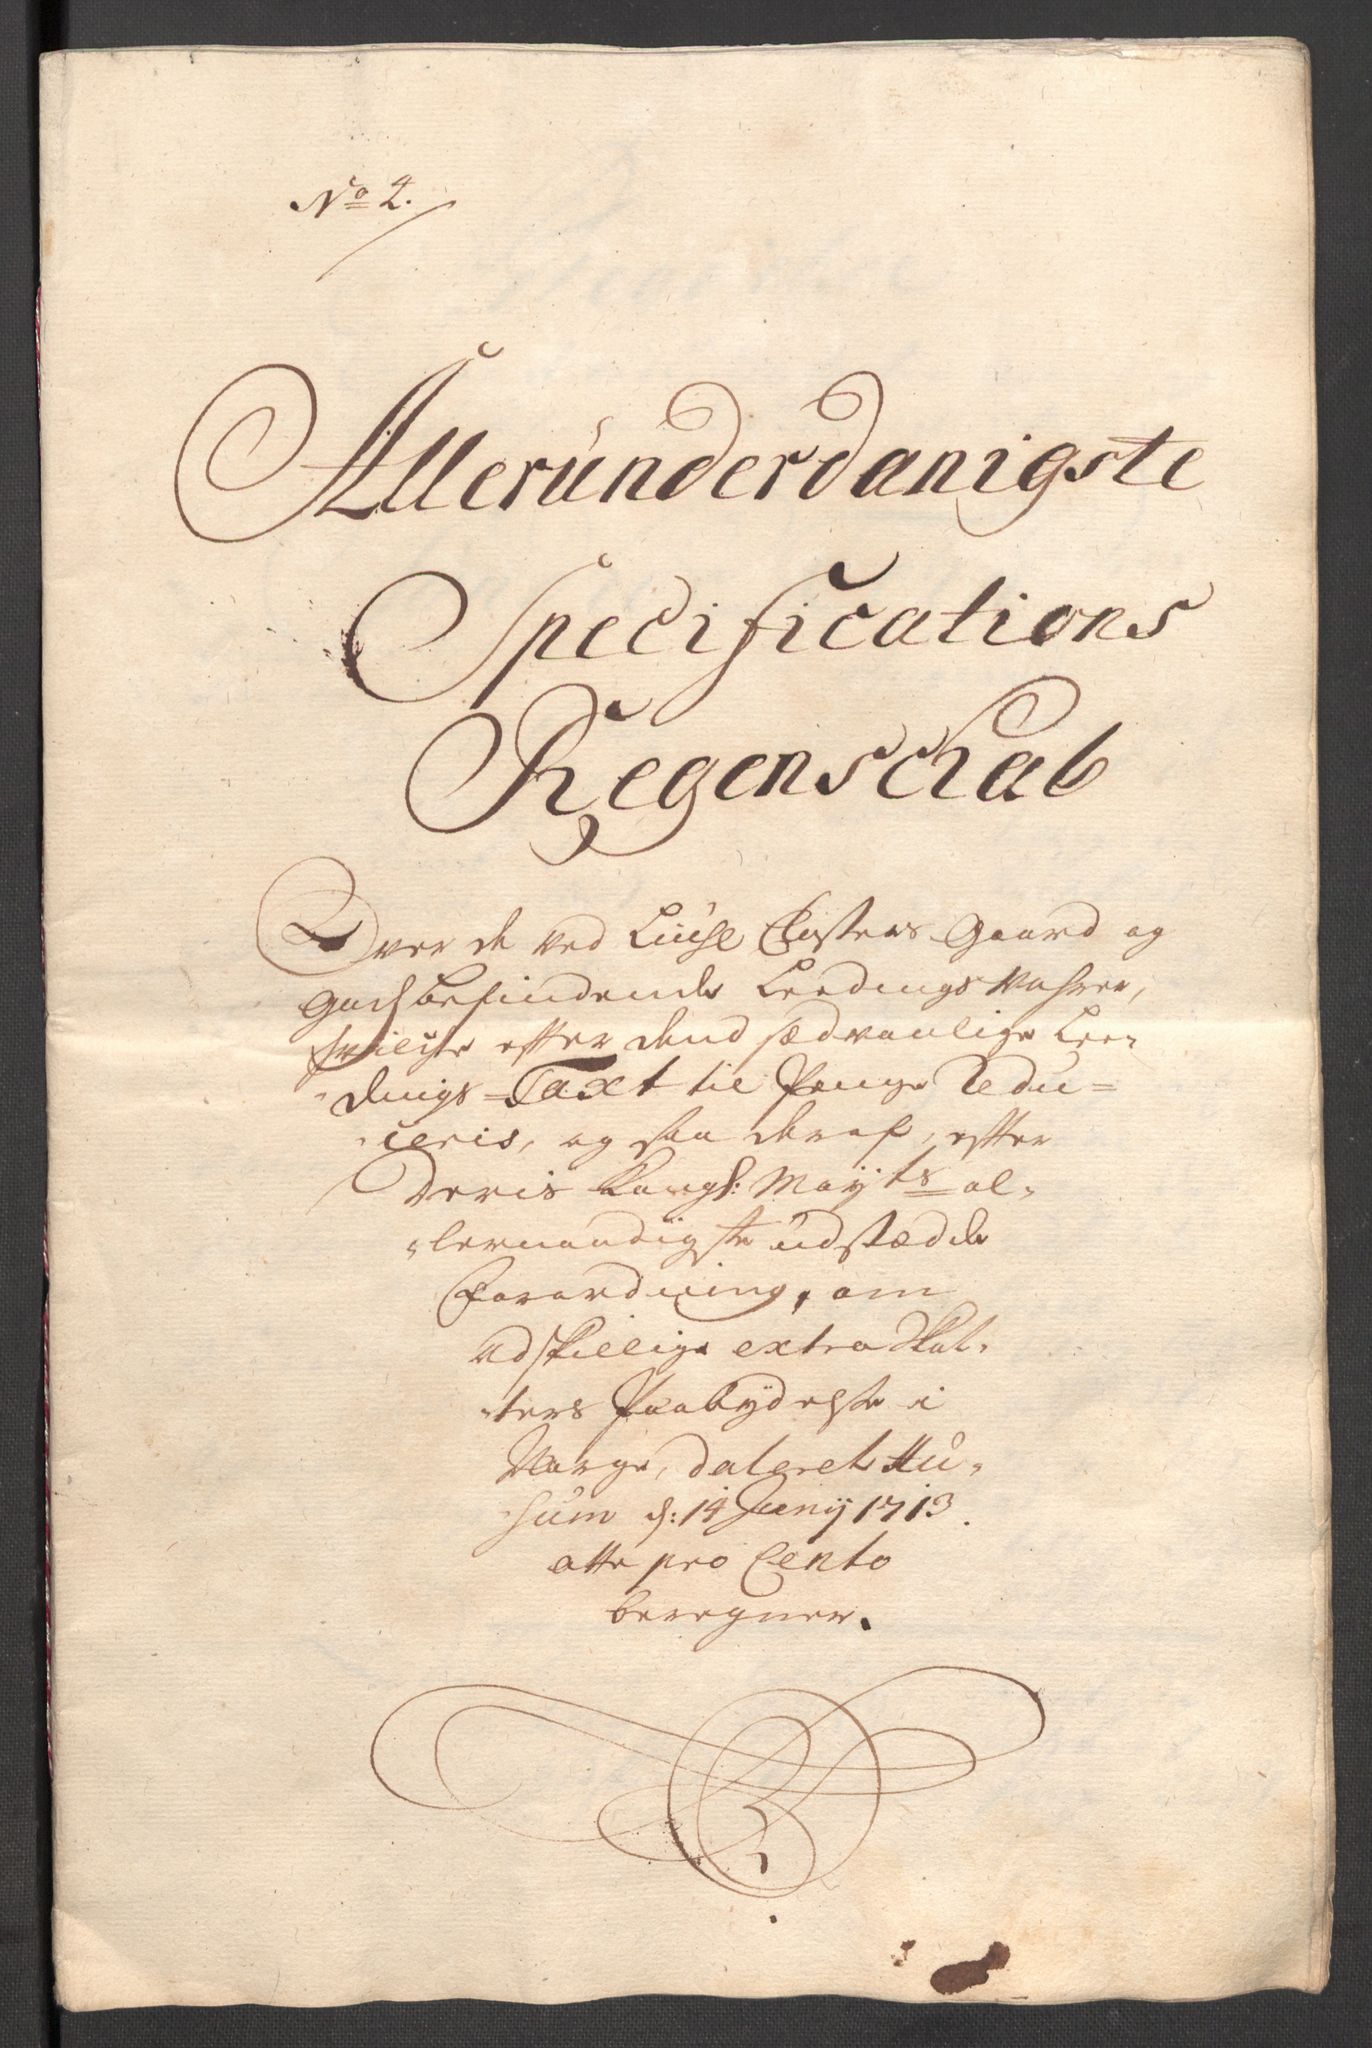 No 2.
Allerúnderdanigste
Specifications
Regenschab
Over de ved Lüüse Closters Gaard og
Gods befindende Leedings Vahrer,
hvilche efter dend sædvanlige Lee„
„dings=Taxt til Penge redu=
„ceris, og saa deraf, efter
Deris Kongl: Mayts al„
„lernaadigste udstædde
Forordning, om
adskillige extra Skat„
„ters Paabÿdelse i
Norge, dateret Hú„
„súm d: 14 Junij 1713.
otte pro Cento
beregner.